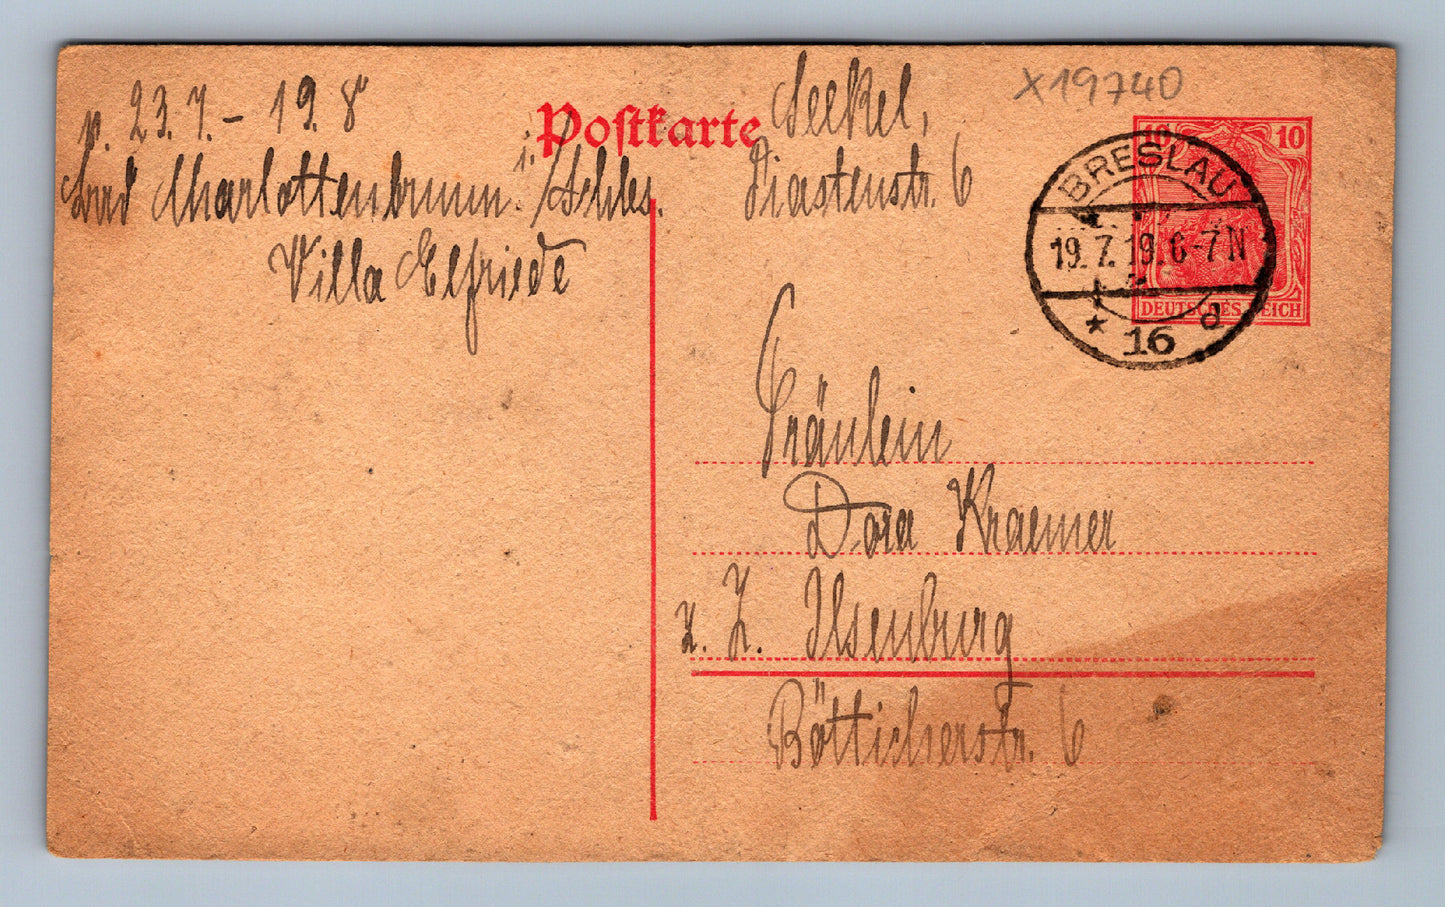 v. 23.7. – 19. 8
Bad Charlottenbrunn i. /Schles.
Villa Elfriede
Postkarte
Seekel,
Piastenstr. 6
X19740
10 10
DEUTSCHES REICH
BRESLAU
19.7.19.6-7N
* 16 d
Fräulein
Dora Kraemer
z. Z. Ilsenburg
Bötticherstr. 6